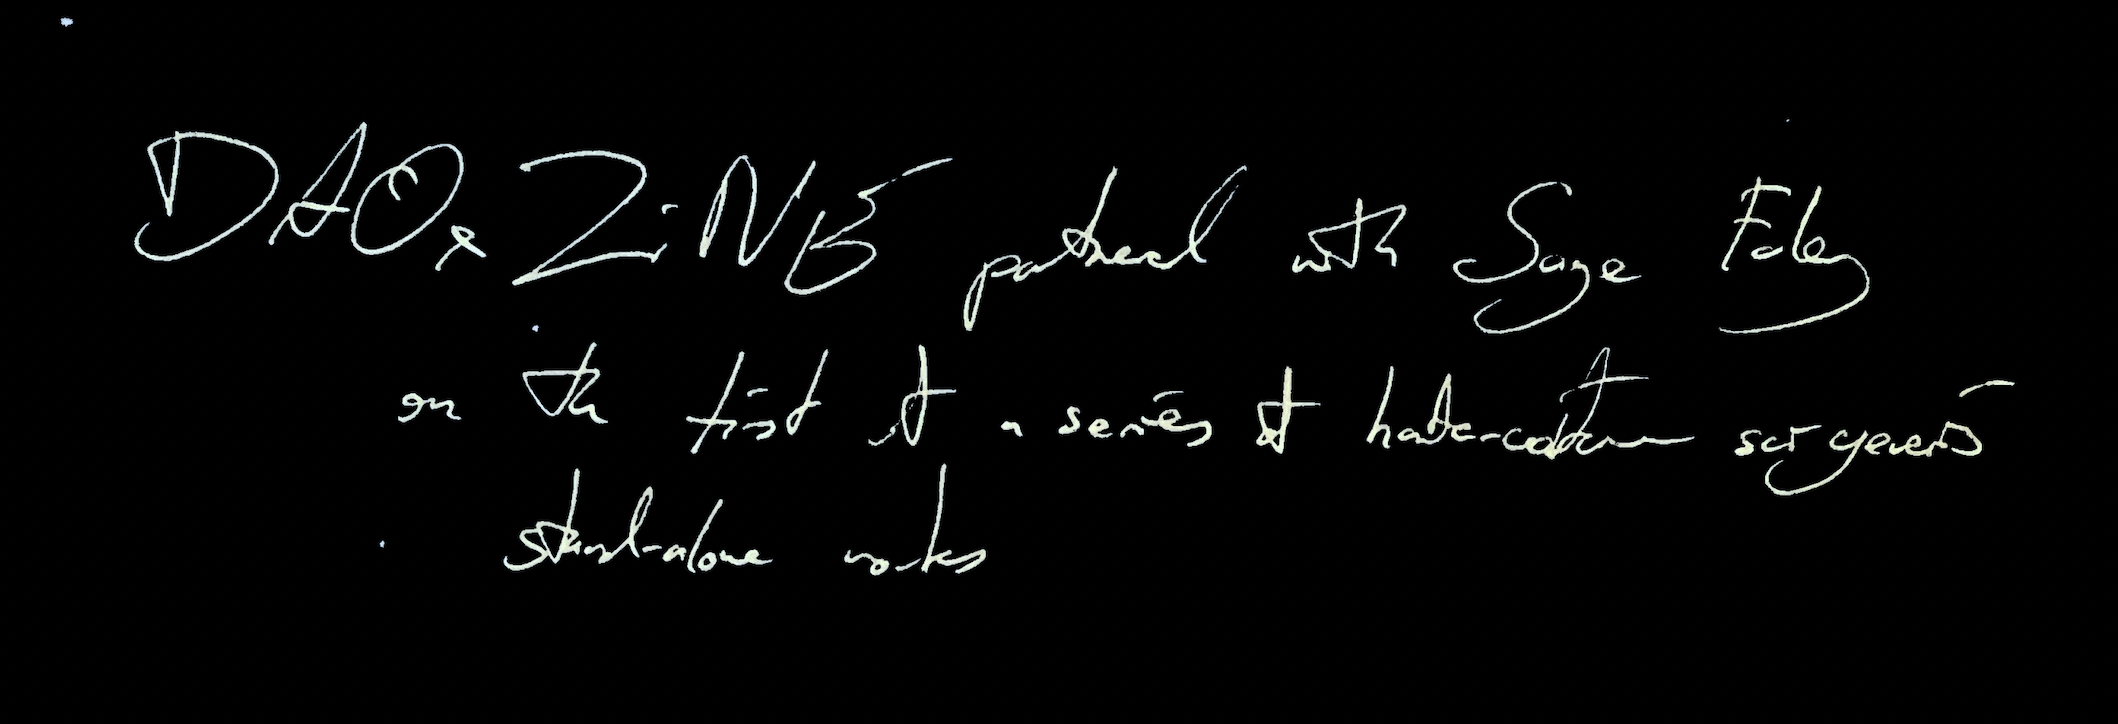 DAOxZiNE partnered with Sage Foley
on the first of a series of haute-couture sui generis
stand-alone works